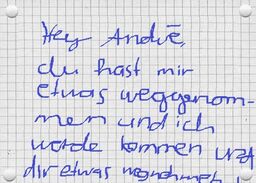 Hey Andrē,
du hast mir
etwas weggenom-
men und ich
werde kommen und
dir etwas wegnehmen